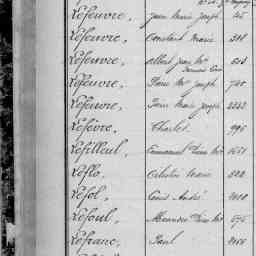 Lefeuvre, Jean Marie Joseph 45
Lefeuvre, Constant Marie 308
Lefeuvre, Albert Jean Mie 503
Lefeuvre, Pierre Mie Joseph 740
Lefeuvre, Pierre Marie Joseph 2232
Lefèvre, Charles 996
Lefilleul, Emmanuel Pierre Mie 1651
Leflo, Célestin Marie 522
Lefol, Louis André 2010
Lefoul, Alexandre Pierre Mie 575
Lefranc, Paul